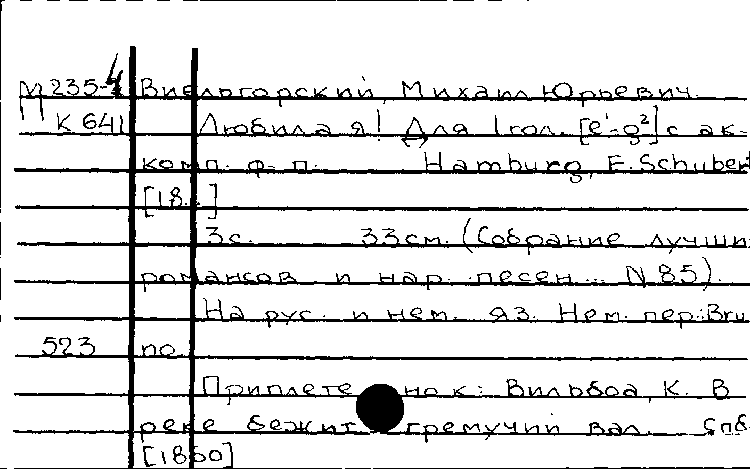 М 235-4 Виельгорский, Михаил Юрьевич.
К 641 Любила я! Для 1 гол. [e¹-g²] с ак-
комп. ф-п. Hamburg, F. Schubert
[18..]
3с. 33см. (Собрание лучши
романсов и нар. песен... N 85).
На рус. и нем. яз. Нем. пер.: Bru
523 no.
Приплетено к: Вильбоа, К. В
реке бежит гремучий вал. Спб
[1860]